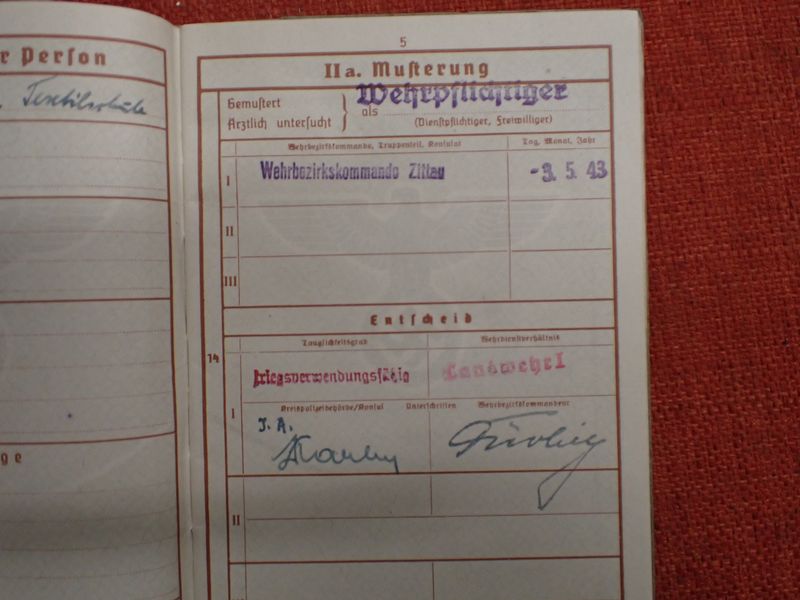 r Person
Textilschule
ge
5
II a. Musterung
Gemustert
Ärztlich untersucht
als
Wehrpflichtiger
(Dienstpflichtiger, Freiwilliger)
Wehrbezirkskommando, Truppenteil, Konsulat
Tag, Monat, Jahr
I
Wehrbezirkskommando Zittau
-3. 5. 43
II
III
Entscheid
14
Tauglichkeitsgrad
Wehrdienstverhältnis
kriegsverwendungsfähig
Landwehr I
I
Kreispolizeibehörde/Konsul
Unterschriften
Wehrbezirkskommandeur
J. A.
II